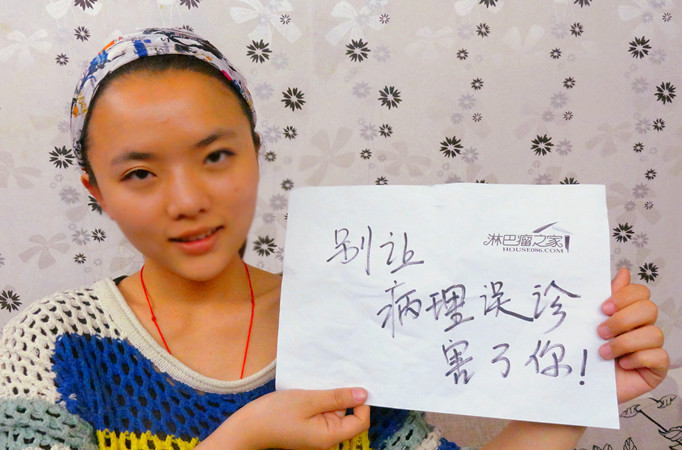 别让
淋巴瘤之家
HOUSE086.COM
病理误诊
害了你!